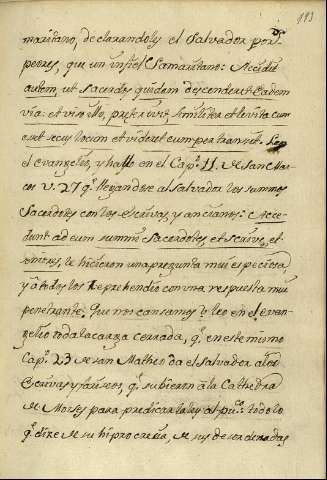 193
maritano, declarandoles el Salvador por
peores, que un infiel Samaritano: Accidit
autem, ut Sacerdos quidam descenderet eadem
via: et viso illo, præterivit similiter et levita cum
esset secus locum et videret eum pertransiit.
el evangelio, y hallo en el Cap.º 11. de San Mar
cos v. 27 q.e llegandose al Salvador los sumos
Sacerdotes con los escrivas, y ancianos: Acce
dunt ad eum summi Sacerdotes, et scrivæ, et
seniores, le hicieron una pregunta mui especiosa,
y à todos los reprehendió con una respuesta mui
penetrante. Que nos cansamos, leo en el evan
gelio toda la carga cerrada, q.e en este mismo
Cap.º 23 de san Matheo da el Salvador a los
Escrivas y fariseos, q.e subieron à la Cathedra
de Moises para predicar la ley al pu.co todo lo
q.e dize de su hiprocresia, de sus desordenadas